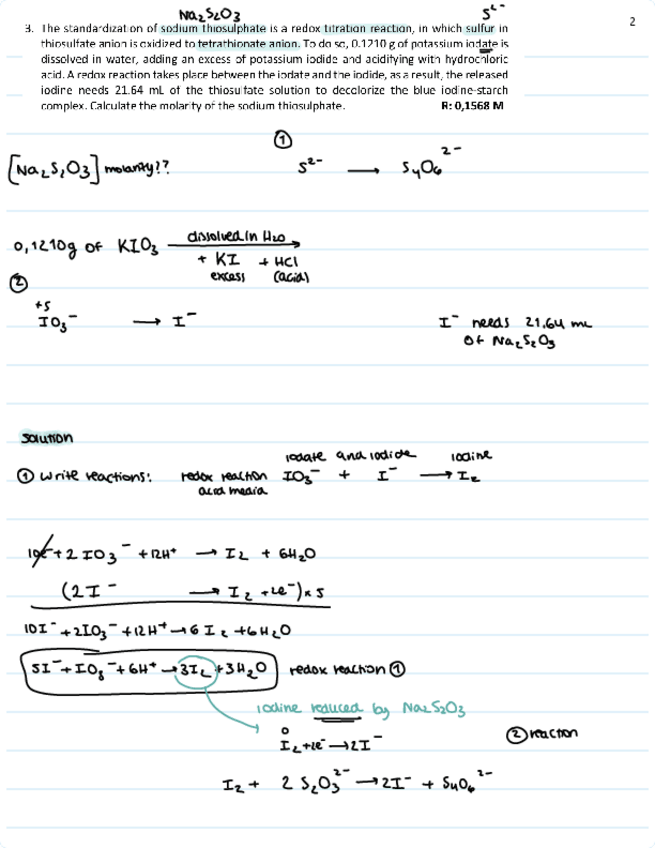 Na2S2O3 S²⁻
2
3. The standardization of sodium thiosulphate is a redox titration reaction, in which sulfur in
thiosulfate anion is oxidized to tetrathionate anion. To do so, 0.1210 g of potassium iodate is
dissolved in water, adding an excess of potassium iodide and acidifying with hydrochloric
acid. A redox reaction takes place between the iodate and the iodide, as a result, the released
iodine needs 21.64 mL of the thiosulfate solution to decolorize the blue iodine-starch
complex. Calculate the molarity of the sodium thiosulphate. R: 0,1568 M
①
[Na2S2O3] molarity?? S²⁻ → S4O6²⁻
0,1210g of KIO3 dissolved in H2O
+ KI + HCl
excess (acid)
②
+5
IO3⁻ → I⁻ I⁻ needs 21,64 mL
of Na2S2O3
solution
iodate and iodide iodine
① Write reactions: redox reaction IO3⁻ + I⁻ → I2
acid media
10e⁻ + 2IO3⁻ + 12H⁺ → I2 + 6H2O
(2I⁻ → I2 + 2e⁻) x 5
10I⁻ + 2IO3⁻ + 12H⁺ → 6I2 + 6H2O
5I⁻ + IO3⁻ + 6H⁺ → 3I2 + 3H2O redox reaction ①
iodine reduced by Na2S2O3
0
I2 + 2e⁻ → 2I⁻ ② reaction
I2 + 2 S2O3²⁻ → 2I⁻ + S4O6²⁻